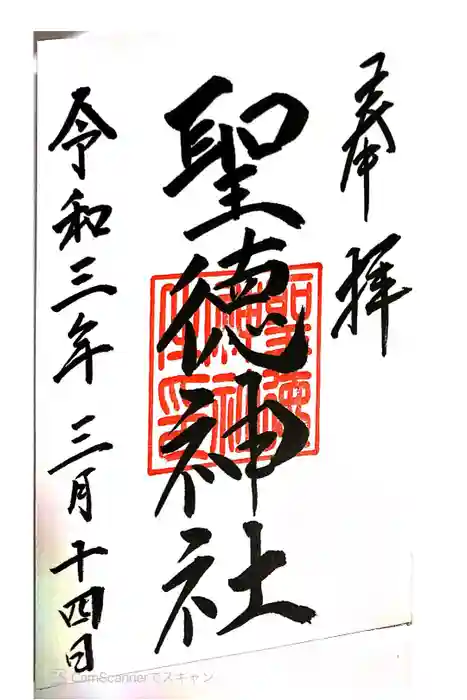 奉拝
聖徳神社
聖徳神社之印
令和三年三月十四日
CamScannerでスキャン